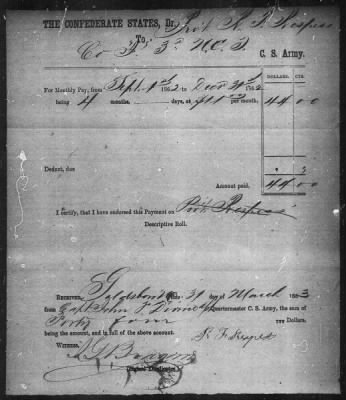 THE CONFEDERATE STATES, Dr.
To Pvt. R. F. Respess
Co F. 3d N.C.T. C. S. Army.
DOLLARS. CTS.
For Monthly Pay, from Sept. 1st 1862 to Dec 31st 1862
being 4 months, days, at $11 00 per month; 44 00
Deduct, due
Amount paid. 44 00
I certify, that I have endorsed this Payment on Pvt. Respess'
Descriptive Roll.
RECEIVED, 31 day of March 1863
from Capt. John Quartermaster C. S. Army, the sum of
Forty four Dollars.
being the amount, and in full of the above account.
Witness,